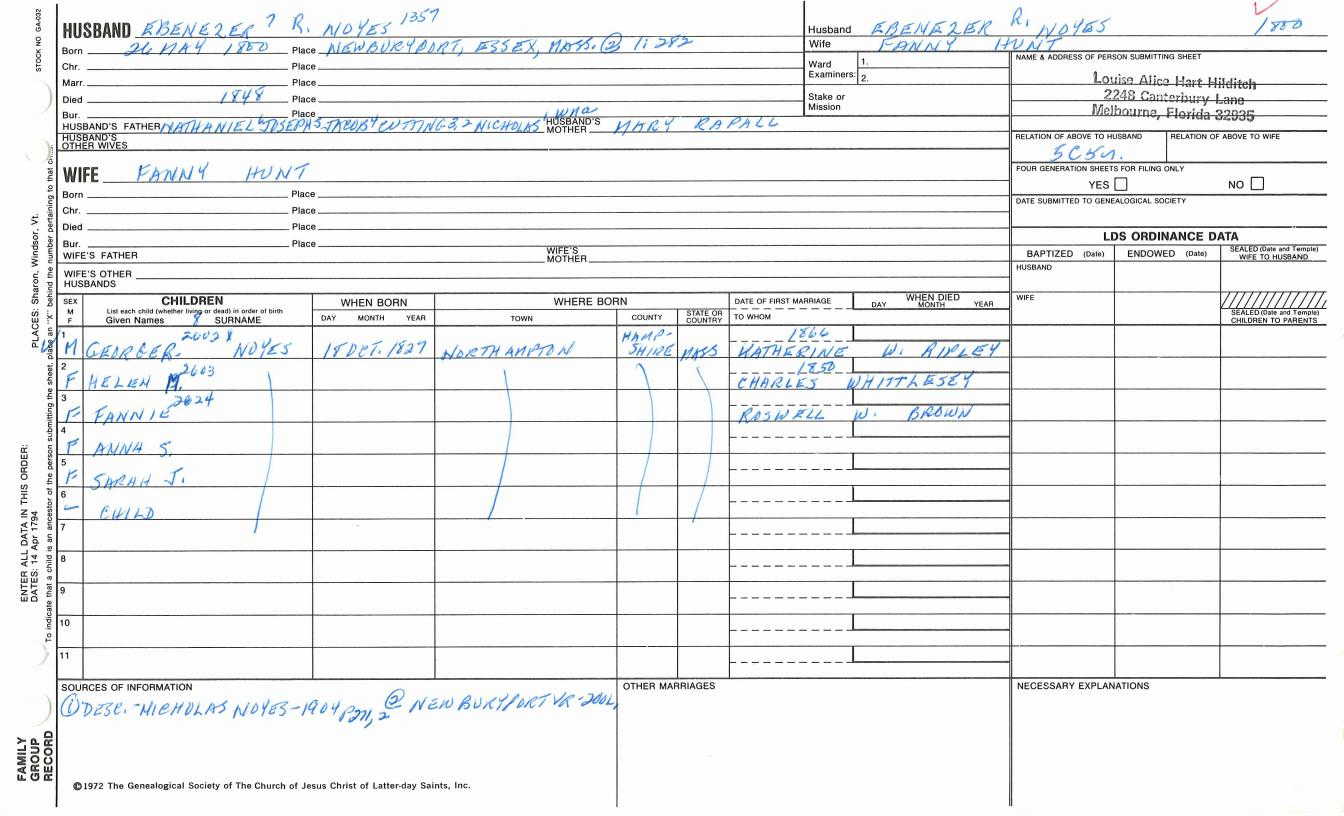 STOCK NO GA-032
HUSBAND EBENEZER 7 R. NOYES 1357
Born 26 MAY 1800 Place NEWBURYPORT, ESSEX, MASS. ② 1: 282
Chr. Place
Marr. Place
Died 1848 Place
Bur. Place
HUSBAND'S FATHER NATHANIEL 6 JOSEPH 5 JACOB 4 CUTTING 3, 2 NICHOLAS 1 wna HUSBAND'S MOTHER MARY RAPALL
HUSBAND'S OTHER WIVES
WIFE FANNY HUNT
Born Place
Chr. Place
Died Place
Bur. Place
WIFE'S FATHER WIFE'S MOTHER
WIFE'S OTHER HUSBANDS
Husband EBENEZER R. NOYES 1800
Wife FANNY HUNT
Ward Examiners: 1. 2.
Stake or Mission
NAME & ADDRESS OF PERSON SUBMITTING SHEET
Louise Alice Hart Hilditch
2248 Canterbury Lane
Melbourne, Florida 32935
RELATION OF ABOVE TO HUSBAND RELATION OF ABOVE TO WIFE
5C5R.
FOUR GENERATION SHEETS FOR FILING ONLY
YES NO
DATE SUBMITTED TO GENEALOGICAL SOCIETY
LDS ORDINANCE DATA
BAPTIZED (Date) ENDOWED (Date) SEALED (Date and Temple) WIFE TO HUSBAND
HUSBAND
WIFE
SEALED (Date and Temple) CHILDREN TO PARENTS
SEX M F CHILDREN WHEN BORN WHERE BORN DATE OF FIRST MARRIAGE WHEN DIED
List each child (whether living or dead) in order of birth
Given Names 8 SURNAME DAY MONTH YEAR TOWN COUNTY STATE OR COUNTRY TO WHOM DAY MONTH YEAR
1 M GEORGE R. 2602 X NOYES 18 OCT. 1827 NORTHAMPTON HAMPSHIRE MASS 1866 KATHERINE W. RIPLEY
2 F HELEN M. 2603 1850 CHARLES WHITTLESEY
3 F FANNIE 2624 ROSWELL W. BROWN
4 F ANNA S.
5 F SARAH J.
6 – CHILD
7
8
9
10
11
SOURCES OF INFORMATION OTHER MARRIAGES NECESSARY EXPLANATIONS
① DESC. - NICHOLAS NOYES - 1904 ② NEWBURYPORT VR -
©1972 The Genealogical Society of The Church of Jesus Christ of Latter-day Saints, Inc.
FAMILY GROUP RECORD
ENTER ALL DATA IN THIS ORDER:
DATES: 14 Apr 1794
PLACES: Sharon, Windsor, Vt.
To indicate that a child is an ancestor of the person submitting the sheet, place an "X" behind the number pertaining to that